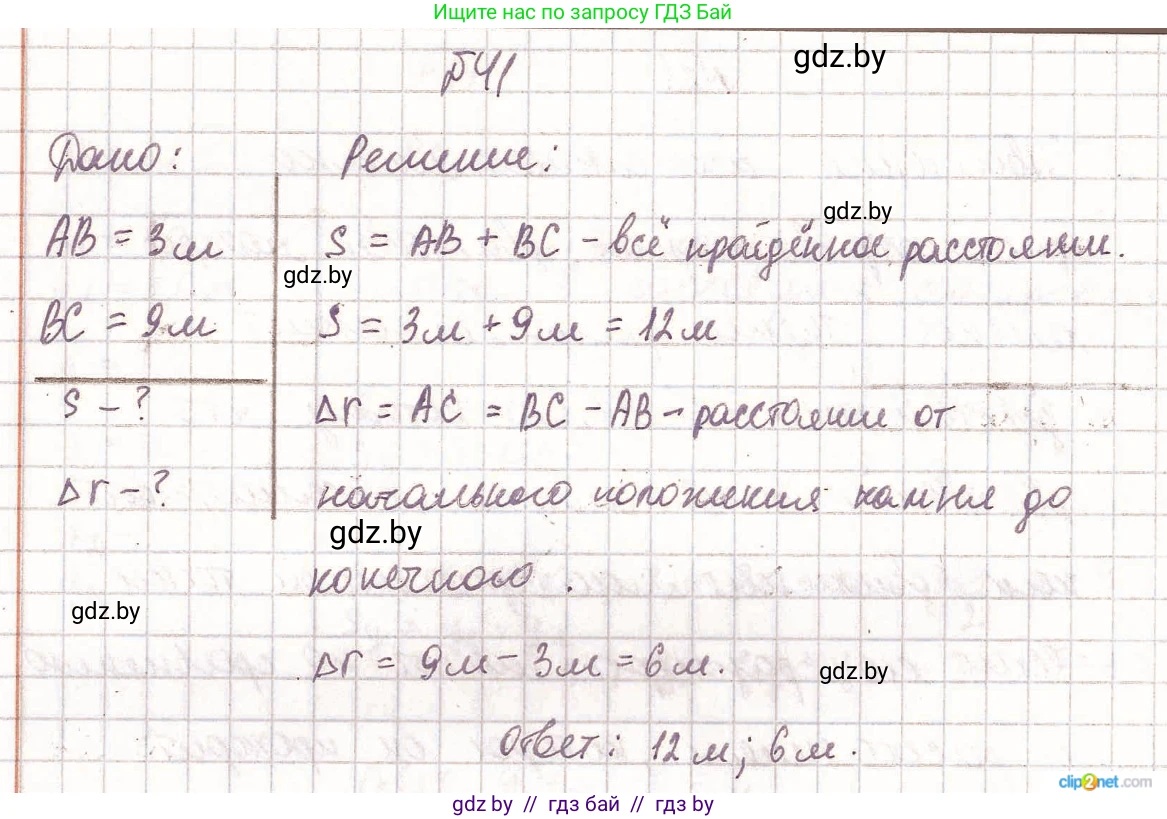 Ищите нас по запросу ГДЗ Бай
gdz.by
№41
Дано:
Решение:
AB = 3м
S = AB + BC - всё пройденное расстояние.
gdz.by
gdz.by
BC = 9м
S = 3м + 9м = 12м
S - ?
Δr = AC = BC - AB - расстояние от
Δr - ?
начального положения камня до
gdz.by
конечного.
gdz.by
Δr = 9м - 3м = 6м.
gdz.by
Ответ: 12м; 6м.
clip2net.com
gdz by // гдз бай // гдз by